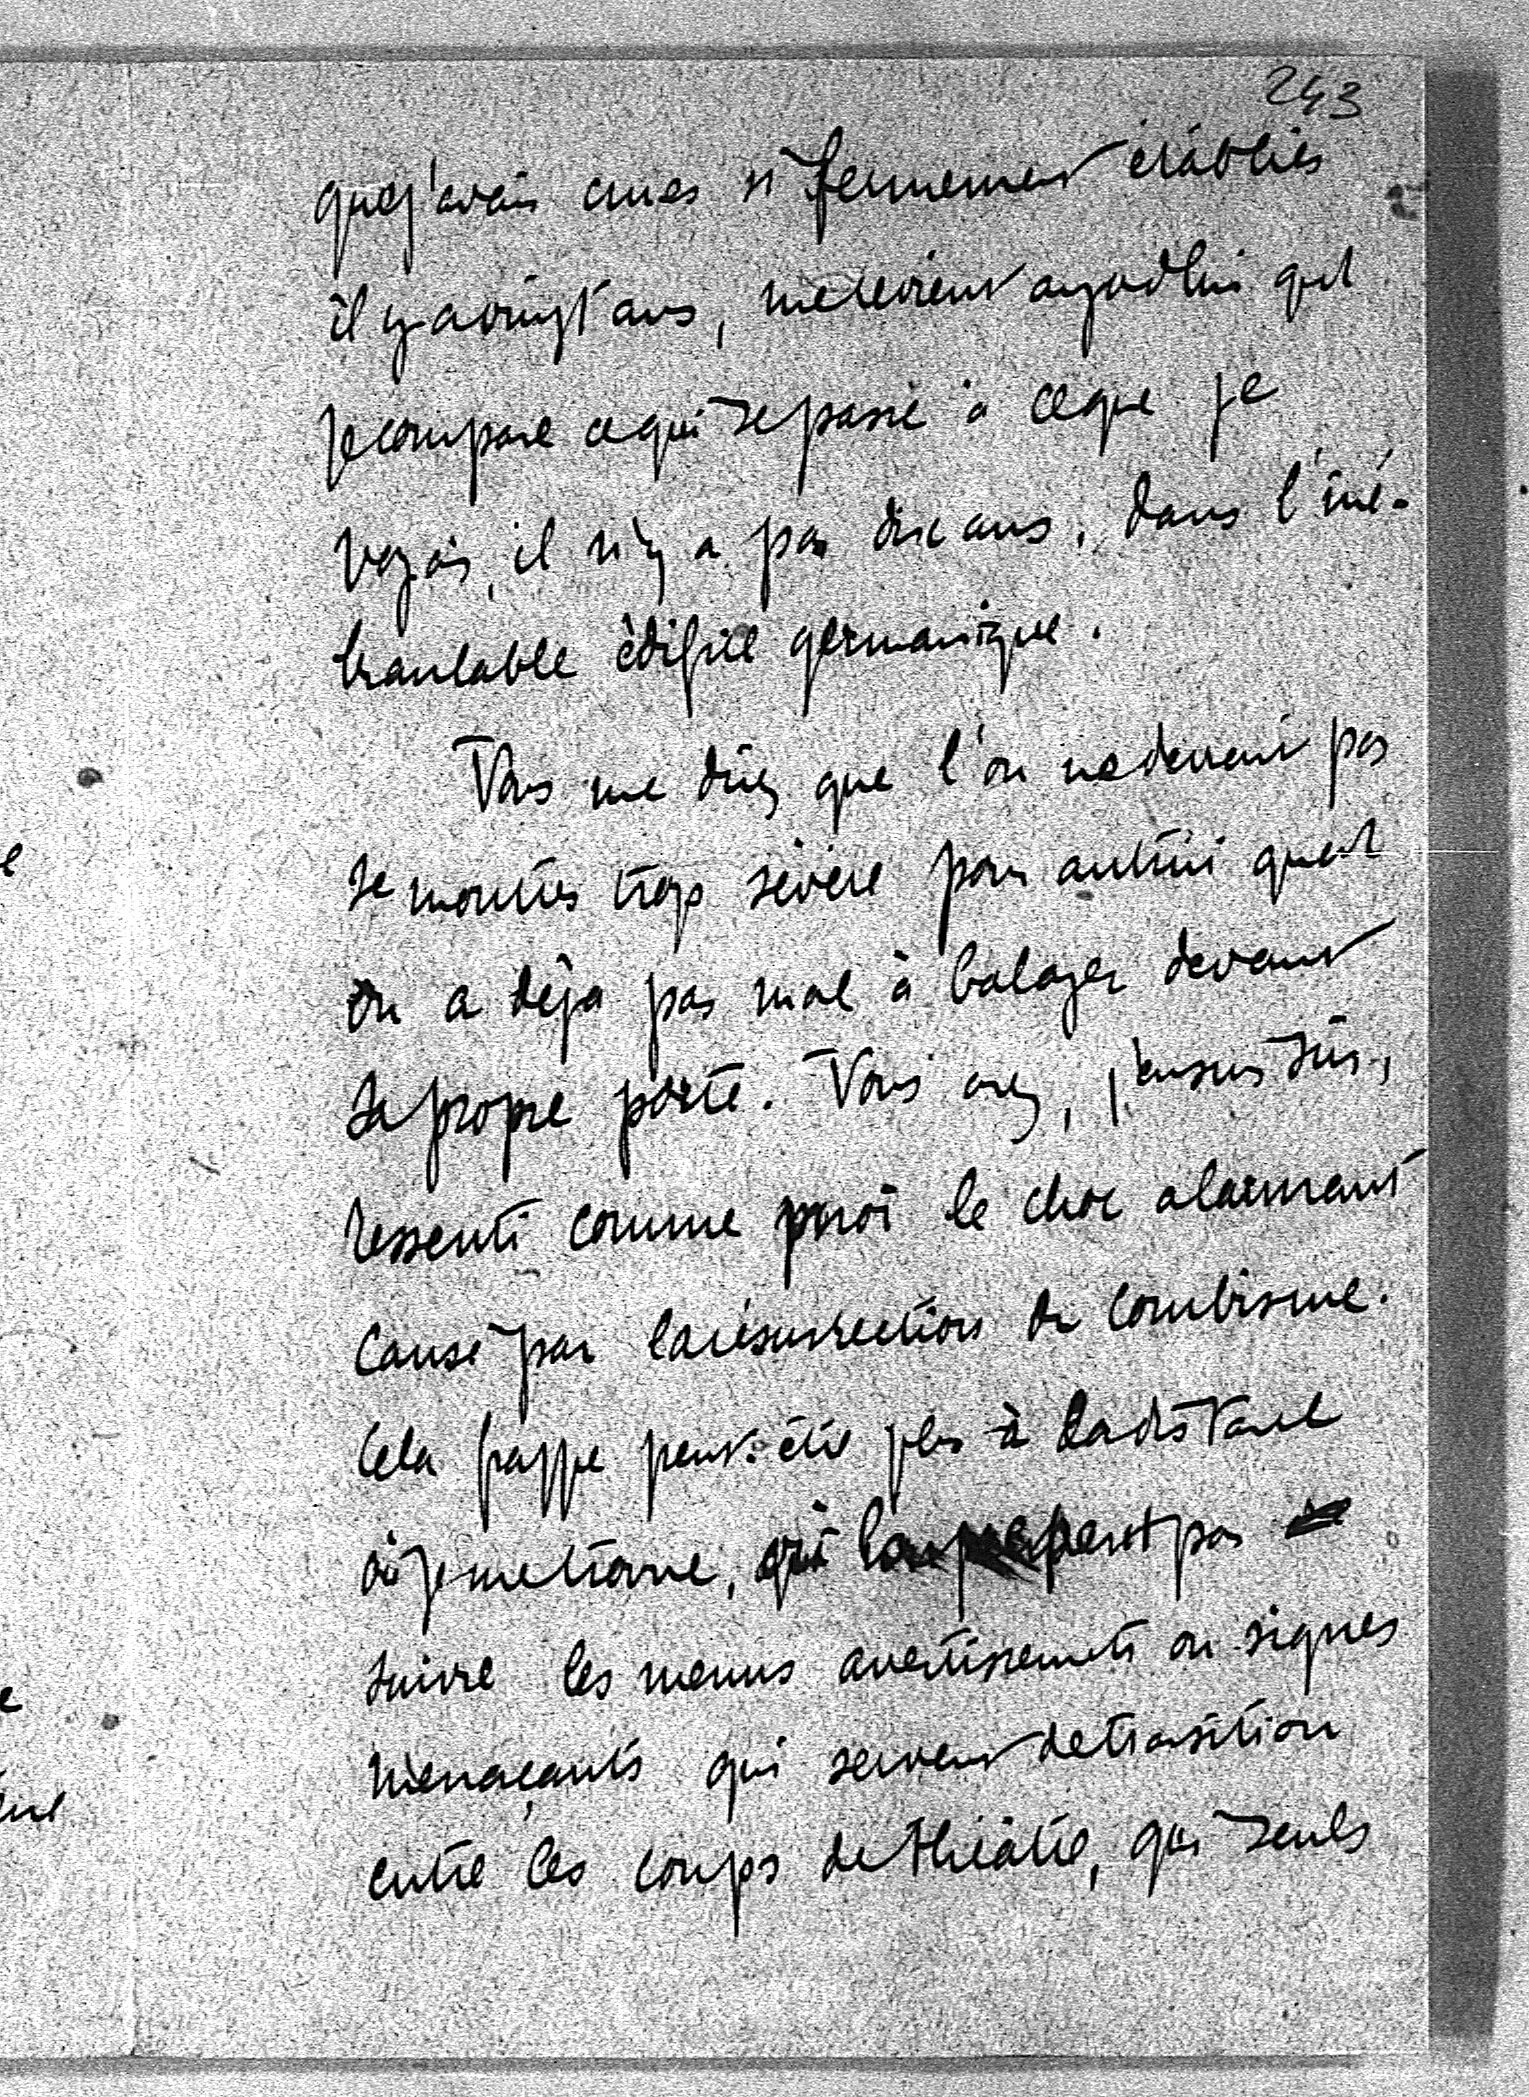 243
que j'avais crues si fermement établies
il y a vingt ans, me revient aujourd'hui qud
je compare ce qui se passe à ce que je
voyais, il n'y a pas dix ans, dans l'iné-
branlable édifice germanique.
Vous me direz que l'on ne devrait pas
se montrer trop sévère pour autrui quand
on a déjà pas mal à balayer devant
sa propre porte. Vous avez, j'en suis sûr,
ressenti comme moi le choc alarmant
causé par la résurrection du Combisme.
Cela frappe peut-être plus à la distance
où je me trouve, qui peut pas
suivre les menus avertissements ou signes
menaçants qui servent de transition
entre les coups de théâtre, qui seuls